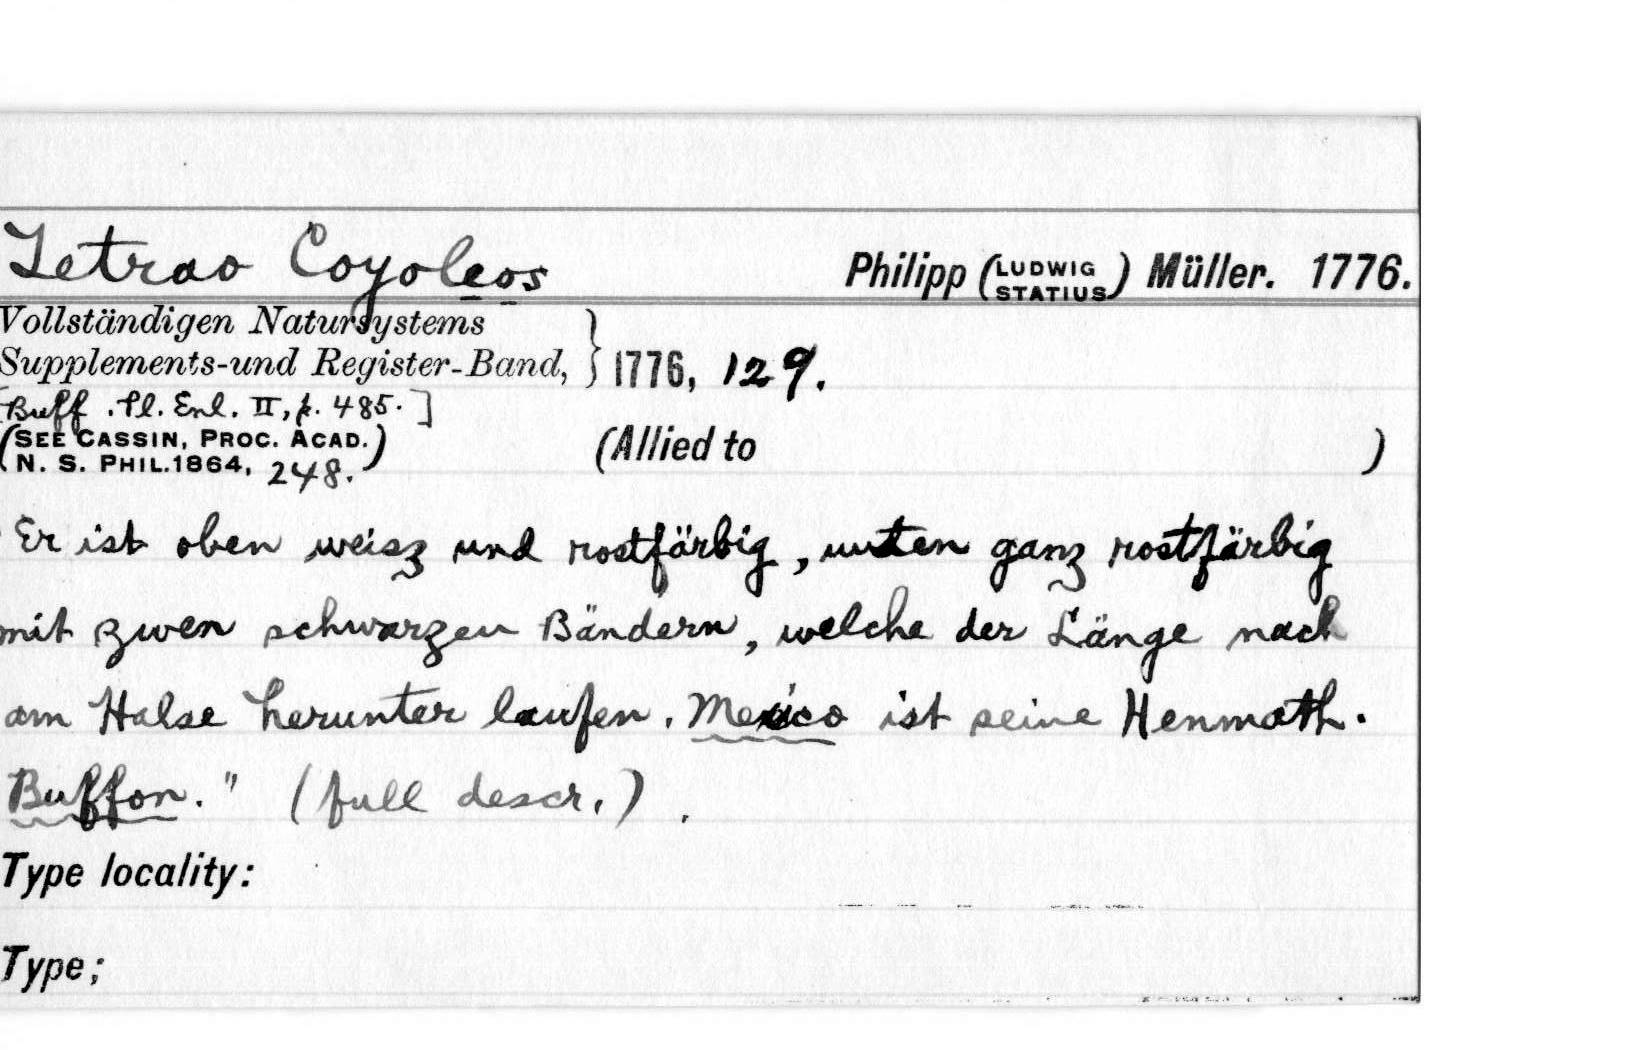 Tetrao Coyoleos Philipp (LUDWIG STATIUS) Müller. 1776.
Vollständigen Natursystems
Supplements-und Register-Band, } 1776, 129.
[Buff. Pl. Enl. II, p. 485.]
(SEE CASSIN, PROC. ACAD. (Allied to )
N. S. PHIL. 1864, 248.)
"Er ist oben weisz und rostfärbig, unten ganz rostfärbig
mit zwen schwarzen Bändern, welche der Länge nach
am Halse herunter laufen. Mexico ist seine Henmath.
Buffon." (full descr.)
Type locality:
Type;